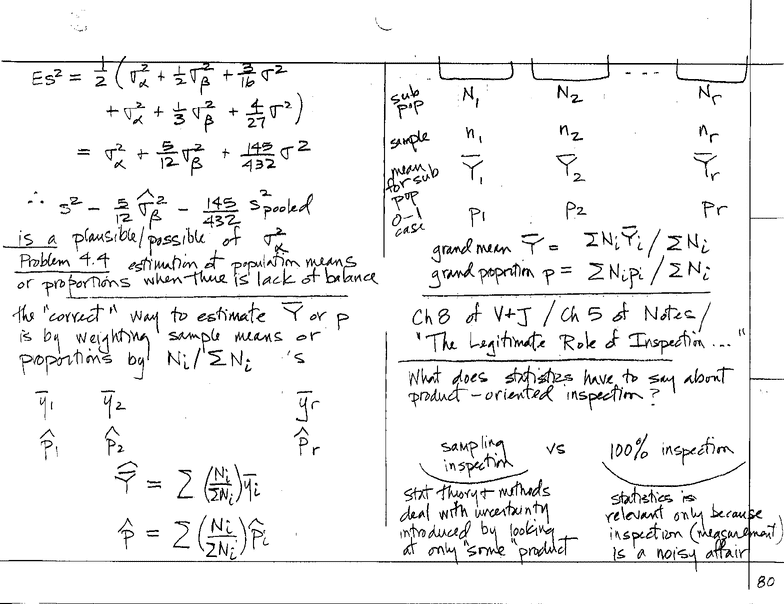 Es² = 1/2 ( σ²α + 1/2 σ²β + 3/16 σ²
+ σ²α + 1/3 σ²β + 4/27 σ² )
= σ²α + 5/12 σ²β + 145/432 σ²
∴ s² - 5/12 σ̂²β - 145/432 s²pooled
is a plausible/possible of σ²α
Problem 4.4 estimation of population means
or proportions when there is lack of balance
the "correct" way to estimate Ȳ or p
is by weighting sample means or
proportions by Ni/ΣNi 's
ȳ1 ȳ2 ȳr
p̂1 p̂2 p̂r
Ȳ̂ = Σ (Ni/ΣNi) ȳi
p̂ = Σ (Ni/ΣNi) p̂i
sub pop N1 N2 - - - Nr
sample n1 n2 nr
mean for sub pop Ȳ1 Ȳ2 Ȳr
0-1 case p1 p2 pr
grand mean Ȳ = ΣNiȲi / ΣNi
grand poprotion p = ΣNipi / ΣNi
Ch 8 of V+J / Ch 5 of Notes /
"The Legitimate Role of Inspection ... "
What does statistics have to say about
product-oriented inspection?
sampling inspection vs 100% inspection
stat theory + methods
deal with uncertainty
introduced by looking
at only "some" product
statistics is
relevant only because
inspection (measurement)
is a noisy affair
80